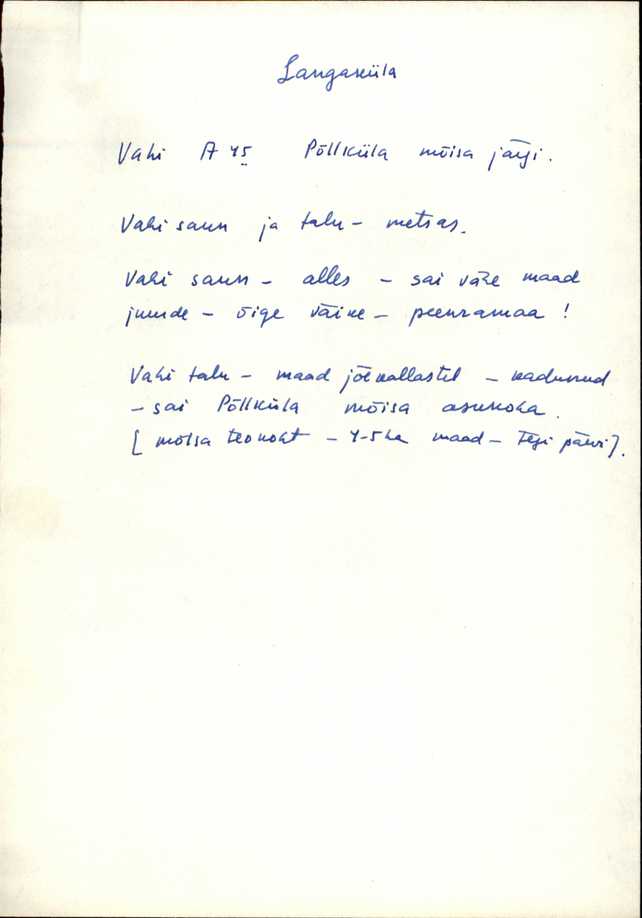 Langaküla
Vahi A 45 Põllküla mõisa järgi.
Vahi saun ja talu – metsas.
Vahi saun – alles – sai vähe maad
juurde – õige väike – peenramaa !
Vahi talu – maad jõevallastel – kadunud
– sai Põllküla mõisa asunoha.
[ mõisa teokoht – 4-5 ha maad – Tegi päevi].